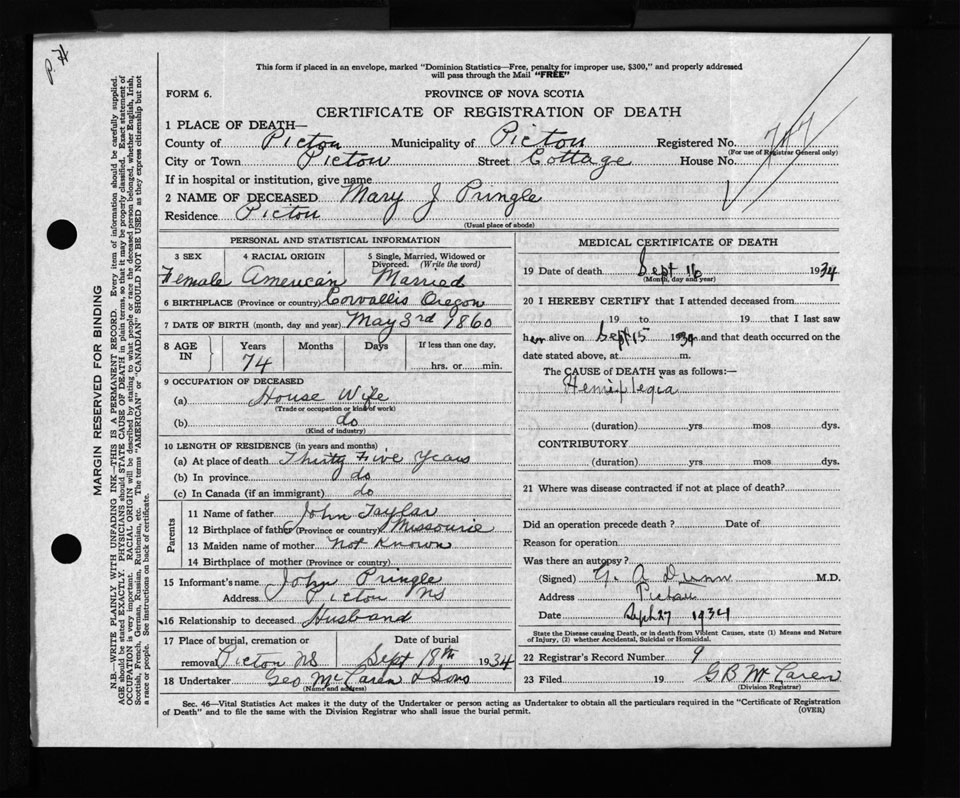 P. H
This form if placed in an envelope, marked "Dominion Statistics—Free, penalty for improper use, $300," and properly addressed
will pass through the Mail "FREE"
FORM 6.
PROVINCE OF NOVA SCOTIA
CERTIFICATE OF REGISTRATION OF DEATH
1 PLACE OF DEATH—
County of Pictou Municipality of Pictou Registered No. 747
(For use of Registrar General only)
City or Town Pictou Street Cottage House No.
If in hospital or institution, give name
2 NAME OF DECEASED Mary J Pringle
Residence Pictou
(Usual place of abode)
PERSONAL AND STATISTICAL INFORMATION
3 SEX 4 RACIAL ORIGIN 5 Single, Married, Widowed or
Divorced. (Write the word)
Female American Married
6 BIRTHPLACE (Province or country) Corvallis Oregon
7 DATE OF BIRTH (month, day and year) May 3rd 1860
8 AGE IN Years Months Days If less than one day,
74 hrs. or min.
9 OCCUPATION OF DECEASED
(a) House Wife
(Trade or occupation or kind of work)
(b) do
(Kind of industry)
10 LENGTH OF RESIDENCE (in years and months)
(a) At place of death Thirty Five Years
(b) In province do
(c) In Canada (if an immigrant) do
Parents
11 Name of father John Taylar
12 Birthplace of father (Province or country) Missourie
13 Maiden name of mother Not Known
14 Birthplace of mother (Province or country)
15 Informant's name John Pringle
Address Pictou NS
16 Relationship to deceased Husband
17 Place of burial, cremation or Date of burial
removal Pictou NS Sept 18th 1934
18 Undertaker Geo McLaren & Sons
(Name and address)
MEDICAL CERTIFICATE OF DEATH
19 Date of death Sept 16 1934
(Month, day and year)
20 I HEREBY CERTIFY that I attended deceased from
19 to 19 that I last saw
her alive on Sept 15 1934 and that death occurred on the
date stated above, at m.
The CAUSE OF DEATH was as follows:
Hemiplegia
(duration) yrs mos dys.
CONTRIBUTORY
(duration) yrs. mos. dys.
21 Where was disease contracted if not at place of death?
Did an operation precede death ? Date of
Reason for operation
Was there an autopsy?
(Signed) G. A Dunn M.D.
Address Pictou
Date Sept 27 1934
State the Disease causing Death, or in death from Violent Causes, state (1) Means and Nature
of Injury, (2) whether Accidental, Suicidal or Homicidal.
22 Registrar's Record Number 9
23 Filed 19 GB McLaren
(Division Registrar)
Sec. 46—Vital Statistics Act makes it the duty of the Undertaker or person acting as Undertaker to obtain all the particulars required in the "Certificate of Registration
of Death" and to file the same with the Division Registrar who shall issue the burial permit.
(OVER)
MARGIN RESERVED FOR BINDING
N.B.—WRITE PLAINLY WITH UNFADING INK—THIS IS A PERMANENT RECORD. Every item of information should be carefully supplied.
AGE should be stated EXACTLY. PHYSICIANS should STATE CAUSE OF DEATH in plain terms, so that it may be properly classified. Exact statement of
OCCUPATION is very important. RACIAL ORIGIN will be described by stating to what people or race the deceased person belonged, whether English, Irish,
Scottish, French, German, Russian, Ruthenian, etc. The terms "AMERICAN" or "CANADIAN" SHOULD NOT BE USED as they express citizenship but not
a race or people. See instructions on back of certificate.